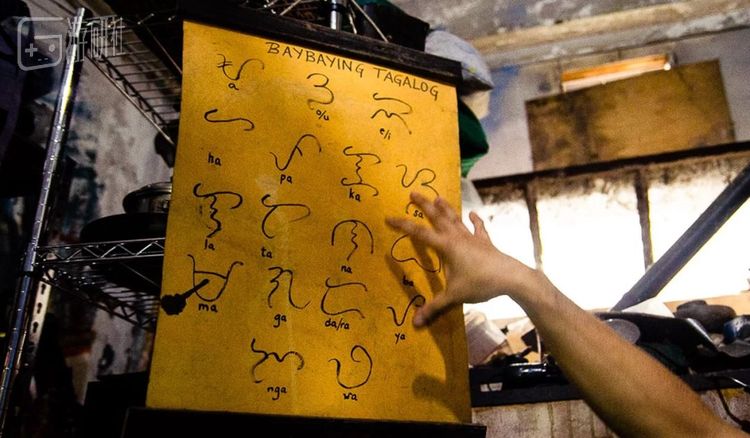 游研社
BAYBAYING TAGALOG
ᜀ ᜂ ᜁ
a o/u e/i
ᜑ ᜉ ᜃ ᜐ
ha pa ka sa
ᜎ ᜆ ᜈ ᜊ
la ta na ba
ᜋ ᜄ ᜇ ᜌ
ma ga da/ra ya
ᜅ ᜏ
nga wa